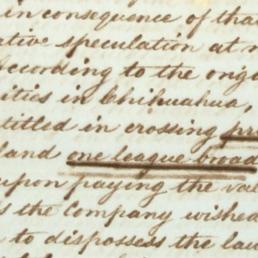 in consequence of that
ative speculation at
According to the orig
ities in Chihuahua,
titled in crossing pr
land one league broad
upon paying the val
s the Company wished
to dispossess the law